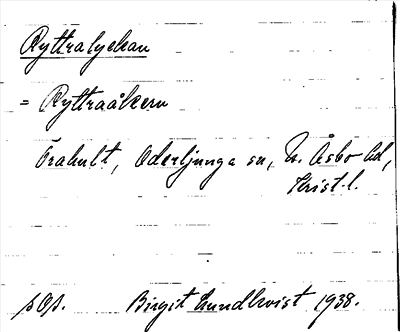 Ryttralyckan
= Ryttraåkern
Örahult, Oderljunga sn, N. Åsbo hd,
Krist. l.
pOp. Birgit Lundkvist 1938.